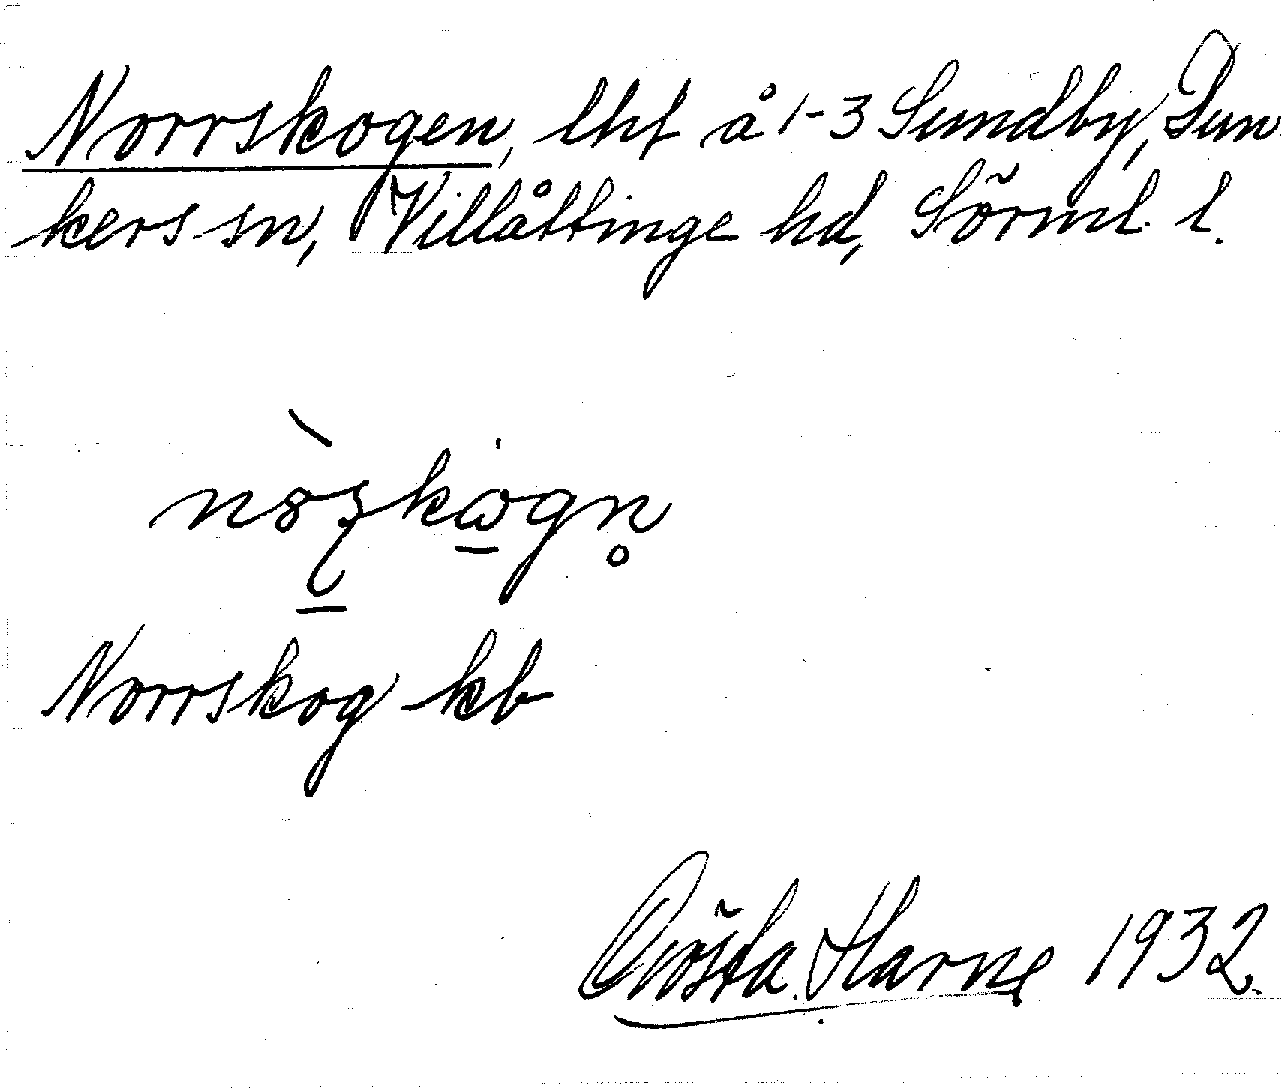 Norrskogen, lht å 1-3 Sundby, Dun
kers sn, Villåttinge hd, Sörml. l.
Norrskog kb
Gösta Harne 1932